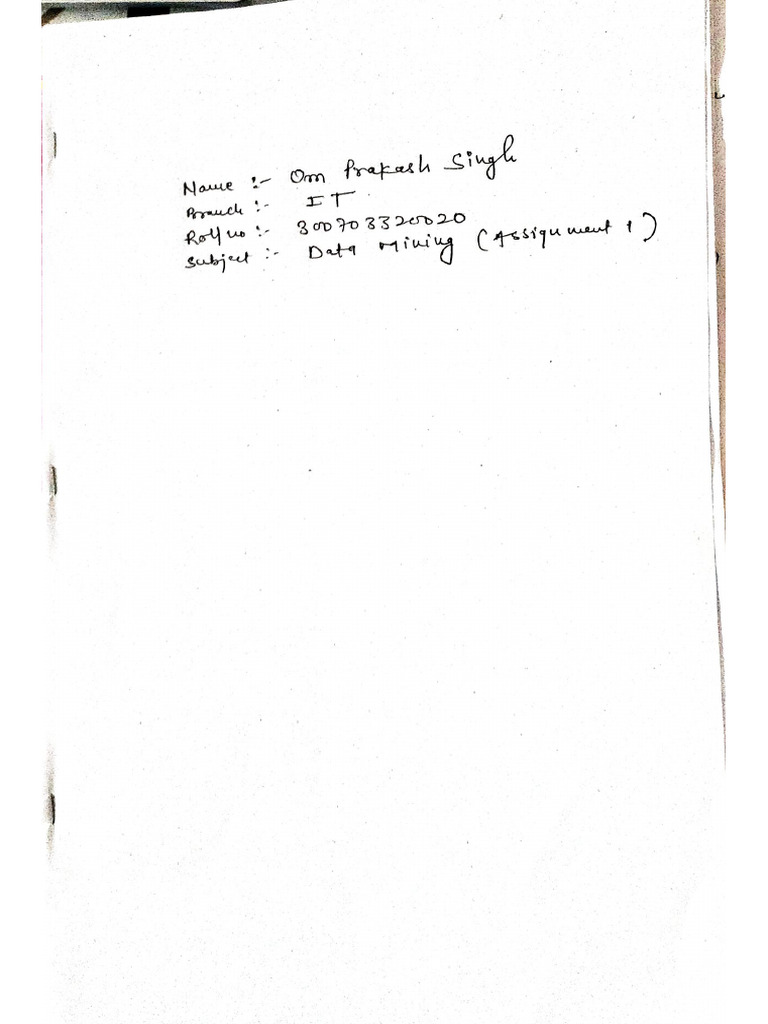 Name :- Om Prakash Singh
Branch :- IT
Roll no :- 300703320020
Subject :- Data Mining (Assignment 1)